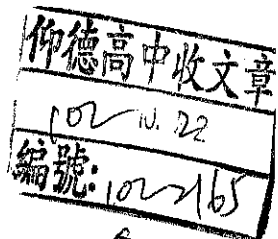 仰德高中收文章
102 10. 22
編號:102-2165